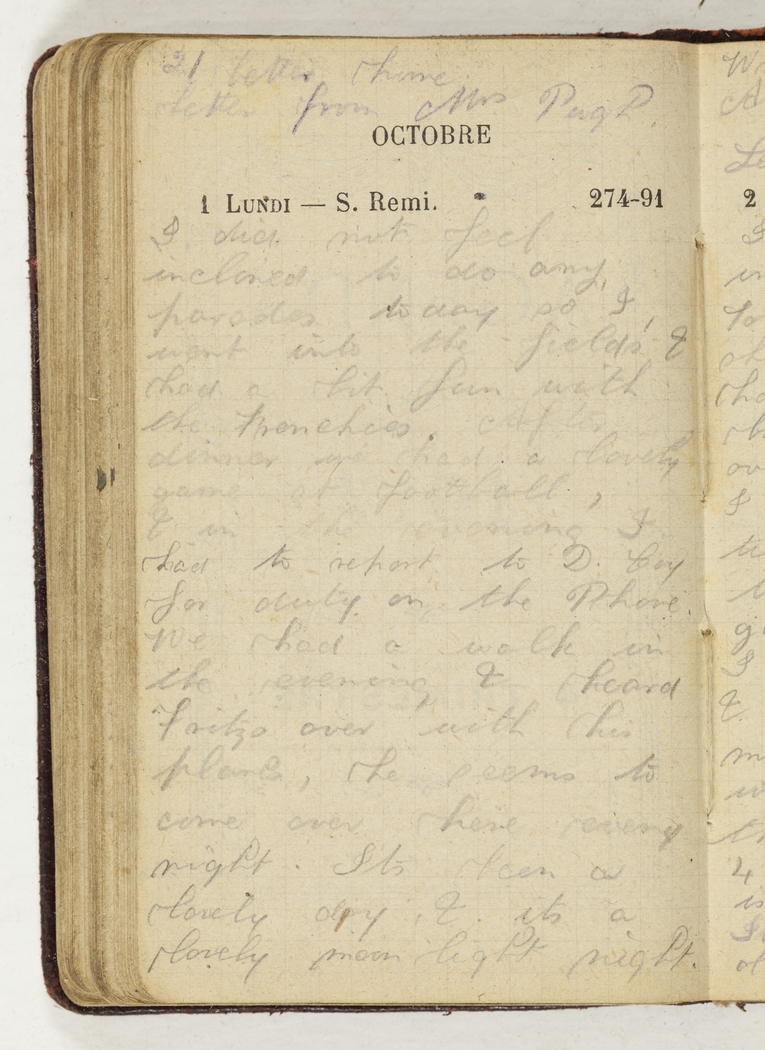 21 letter home
letter from Mrs Pugh.
OCTOBRE
1 LUNDI — S. Remi. 274-91
I did not feel
inclined to do any
parades today so I
went into the fields &
had a bit fun with
the Frenchies. After
dinner we had a lovely
game at football,
& in the evening I
had to report to D. Coy
for duty on the Phone.
We had a walk in
the evening & heard
Fritzo over with his
plane, he seems to
come over here every
night. Its been a
lovely day & its a
lovely moon light night.
2